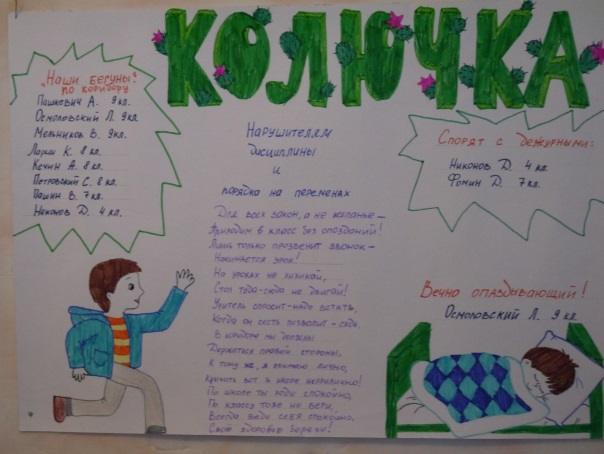 КОЛЮЧКА
"Наши бегуны"
по коридору
Пашкевич А. 9 кл.
Осмоловский Л. 9 кл.
Мельников В. 9 кл.
К. 8 кл.
Кечин А. 8 кл.
Петровский С. 8 кл.
Пашин В. 7 кл.
Никонов Д. 4 кл.
Нарушителям
дисциплины
и
порядка на переменах
Для всех закон, а не желанье –
Приходим в класс без опозданий!
Лишь только прозвенит звонок –
Начинается урок!
На уроках не хихикай,
Стол туда-сюда не двигай!
Учитель спросит – надо встать,
Когда он сесть позволит – сядь.
В коридоре мы должны
Держаться правой стороны,
К тому же, я считаю лично,
Кричать вот в школе неприлично!
По школе ты ходи спокойно,
По классу тоже не беги,
Всегда веди себя спокойно,
Своё здоровье береги!
Спорят с дежурными:
Никонов Д. 4 кл.
Фомин Д. 7 кл.
Вечно опаздывающий!
Осмоловский Л. 9 кл.